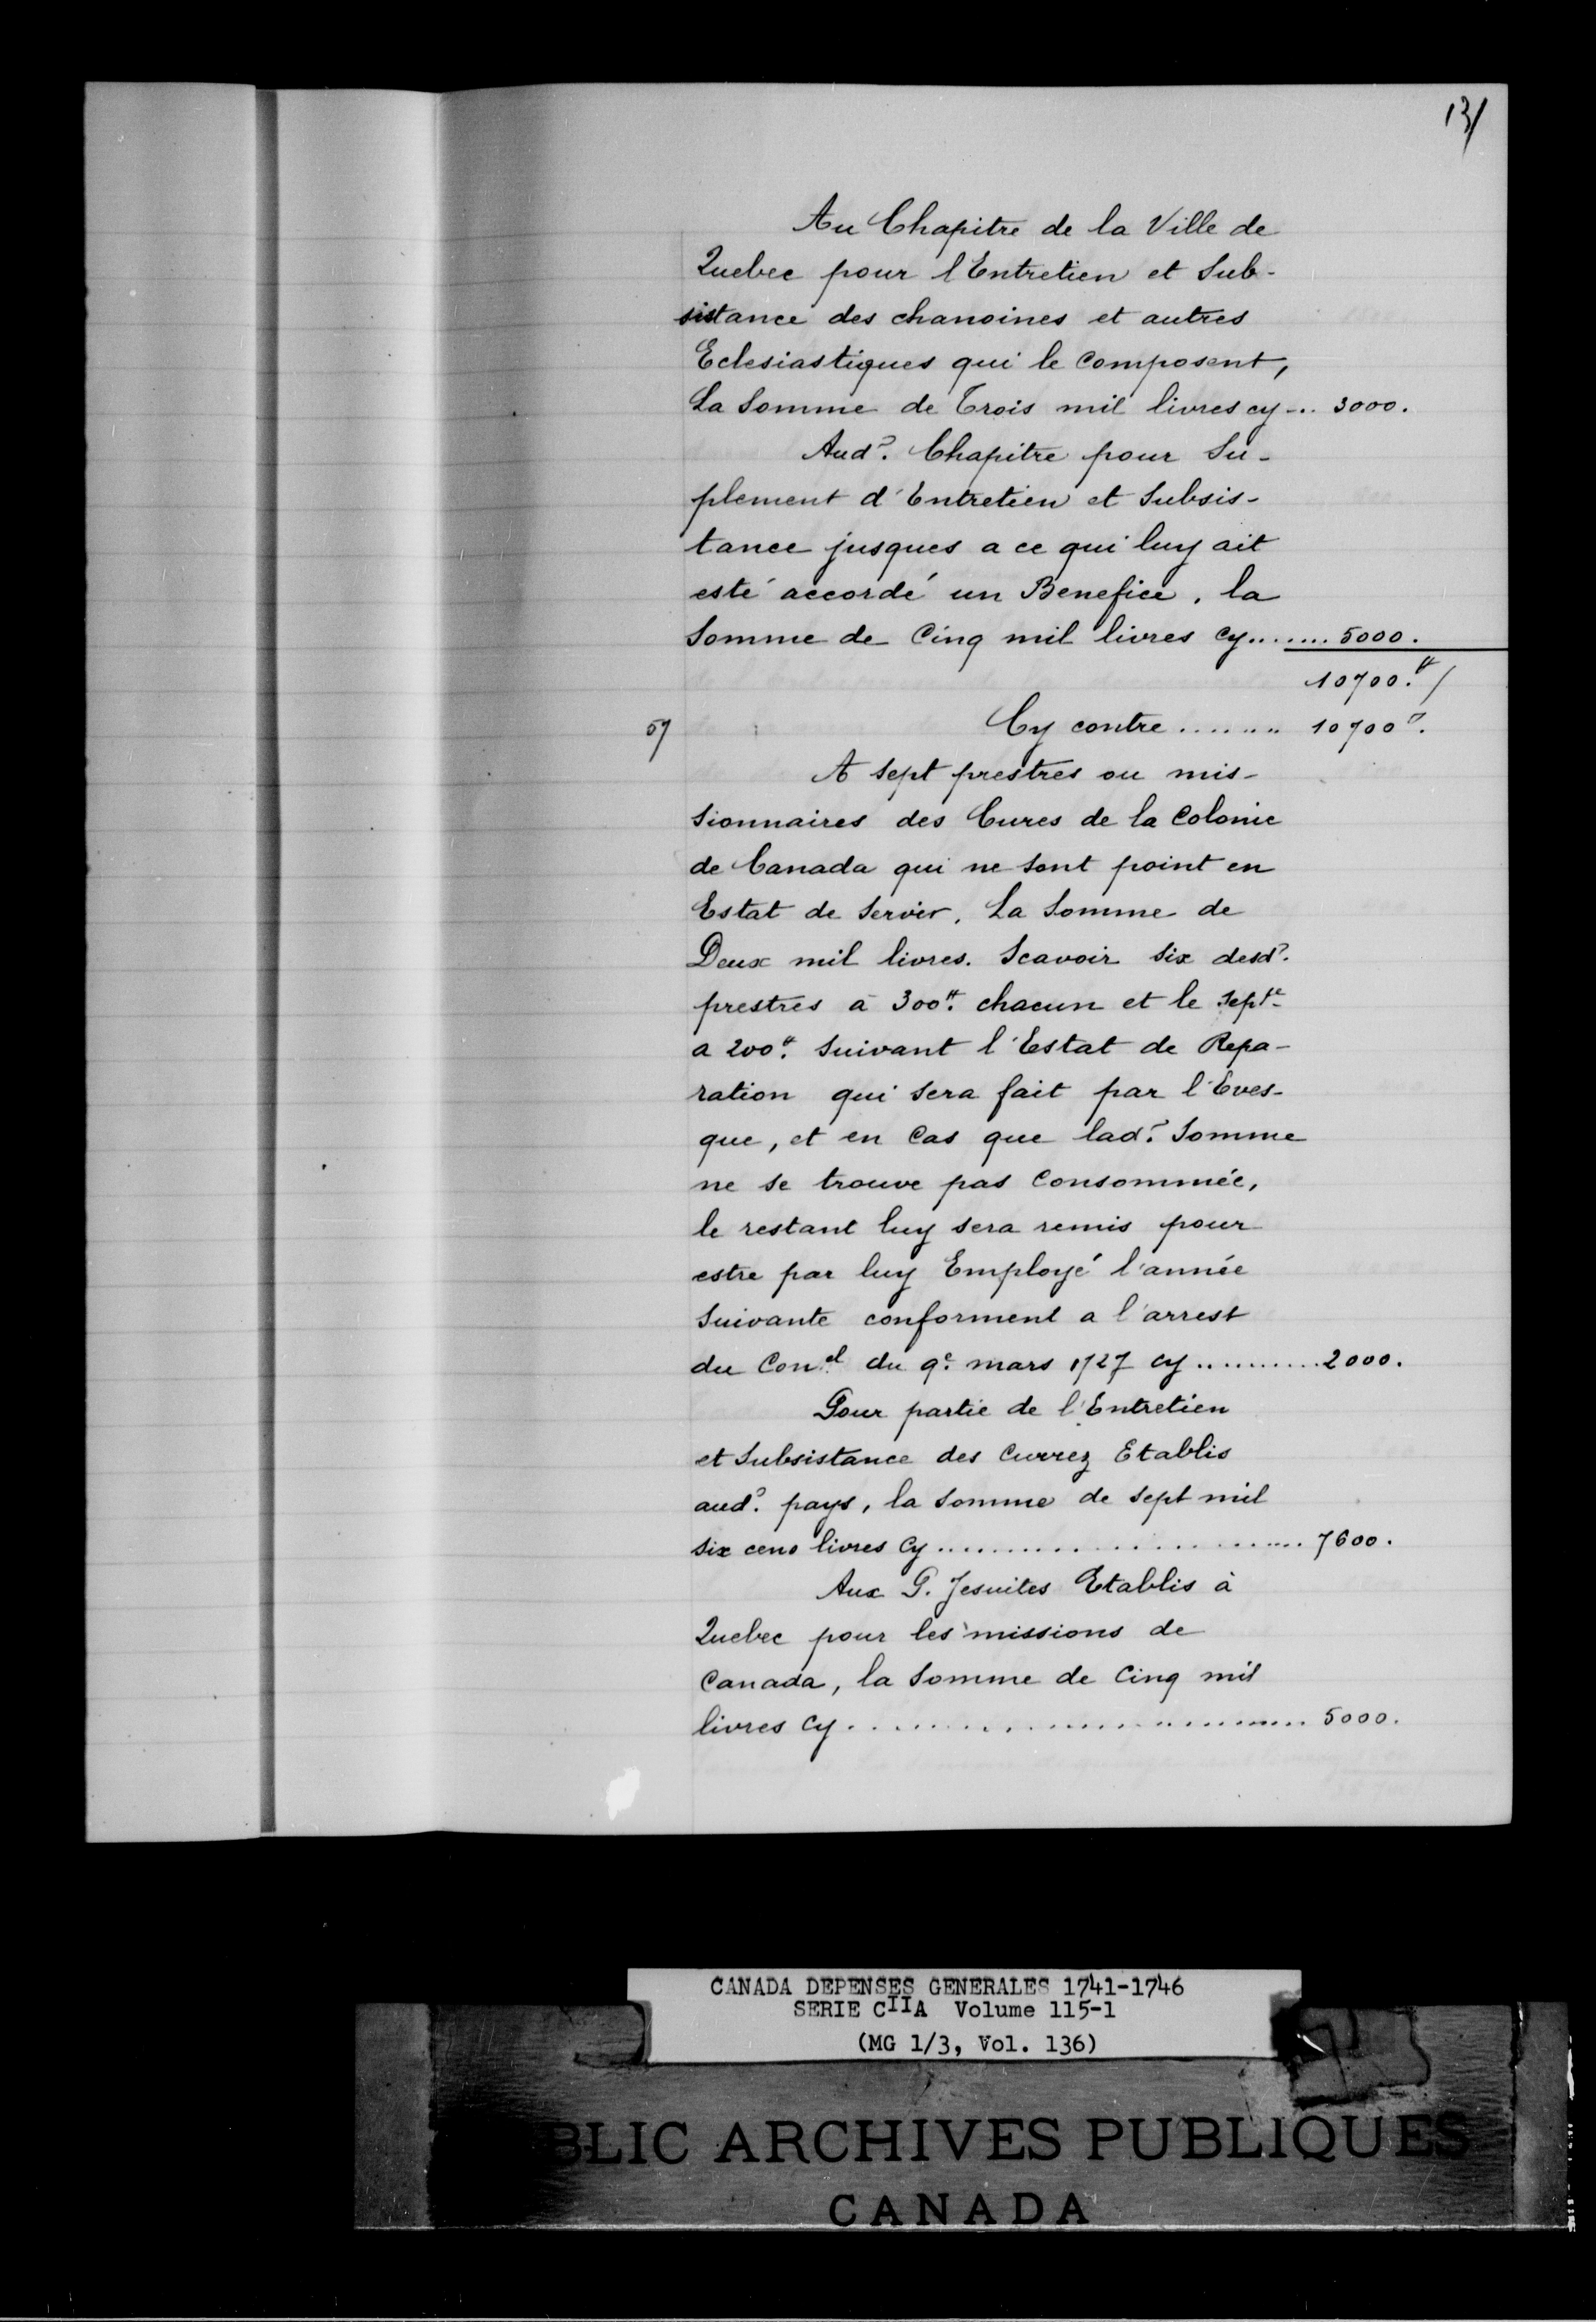 131
Au Chapitre de la Ville de
Quebec pour l'Entretien et Sub-
sistance des chanoines et autres
Eclesiastiques qui le Composent,
La Somme de Trois mil livres cy ... 3000.
Aud? Chapitre pour Su-
plement d'Entretien et Subsis-
tance jusques a ce qui luy ait
esté accordé un Benefice, la
Somme de Cinq mil livres Cy ....... 5000.
10700.ᵗᵗ/
57 Cy contre ....... 10700ᵗᵗ.
A Sept prestres ou mis-
sionnaires des Cures de la Colonie
de Canada qui ne sont point en
Estat de Servir, La Somme de
Deux mil livres. Scavoir Six desd?
prestres à 300ᵗᵗ. chacun et le Septᵉ
a 200ᵗᵗ. Suivant l'Estat de Repa-
ration qui Sera fait par l'Eves-
que, et en Cas que lad? Somme
ne se trouve pas Consommée,
le restant luy sera remis pour
estre par luy Employé l'année
Suivante conforment a l'arrest
du Conᵉˡ du 9ᵉ mars 1727 cy .......... 2000.
Pour partie de l'Entretien
et Subsistance des Currez Etablis
aud? pays, la Somme de Sept mil
Six cens livres Cy .......................... 7600.
Aux P. Jesuites Etablis à
Quebec pour les missions de
Canada, la Somme de Cinq mil
livres Cy .......................... 5000.
CANADA DEPENSES GENERALES 1741-1746
SERIE CIIA Volume 115-1
(MG 1/3, Vol. 136)
BLIC ARCHIVES PUBLIQUES
CANADA